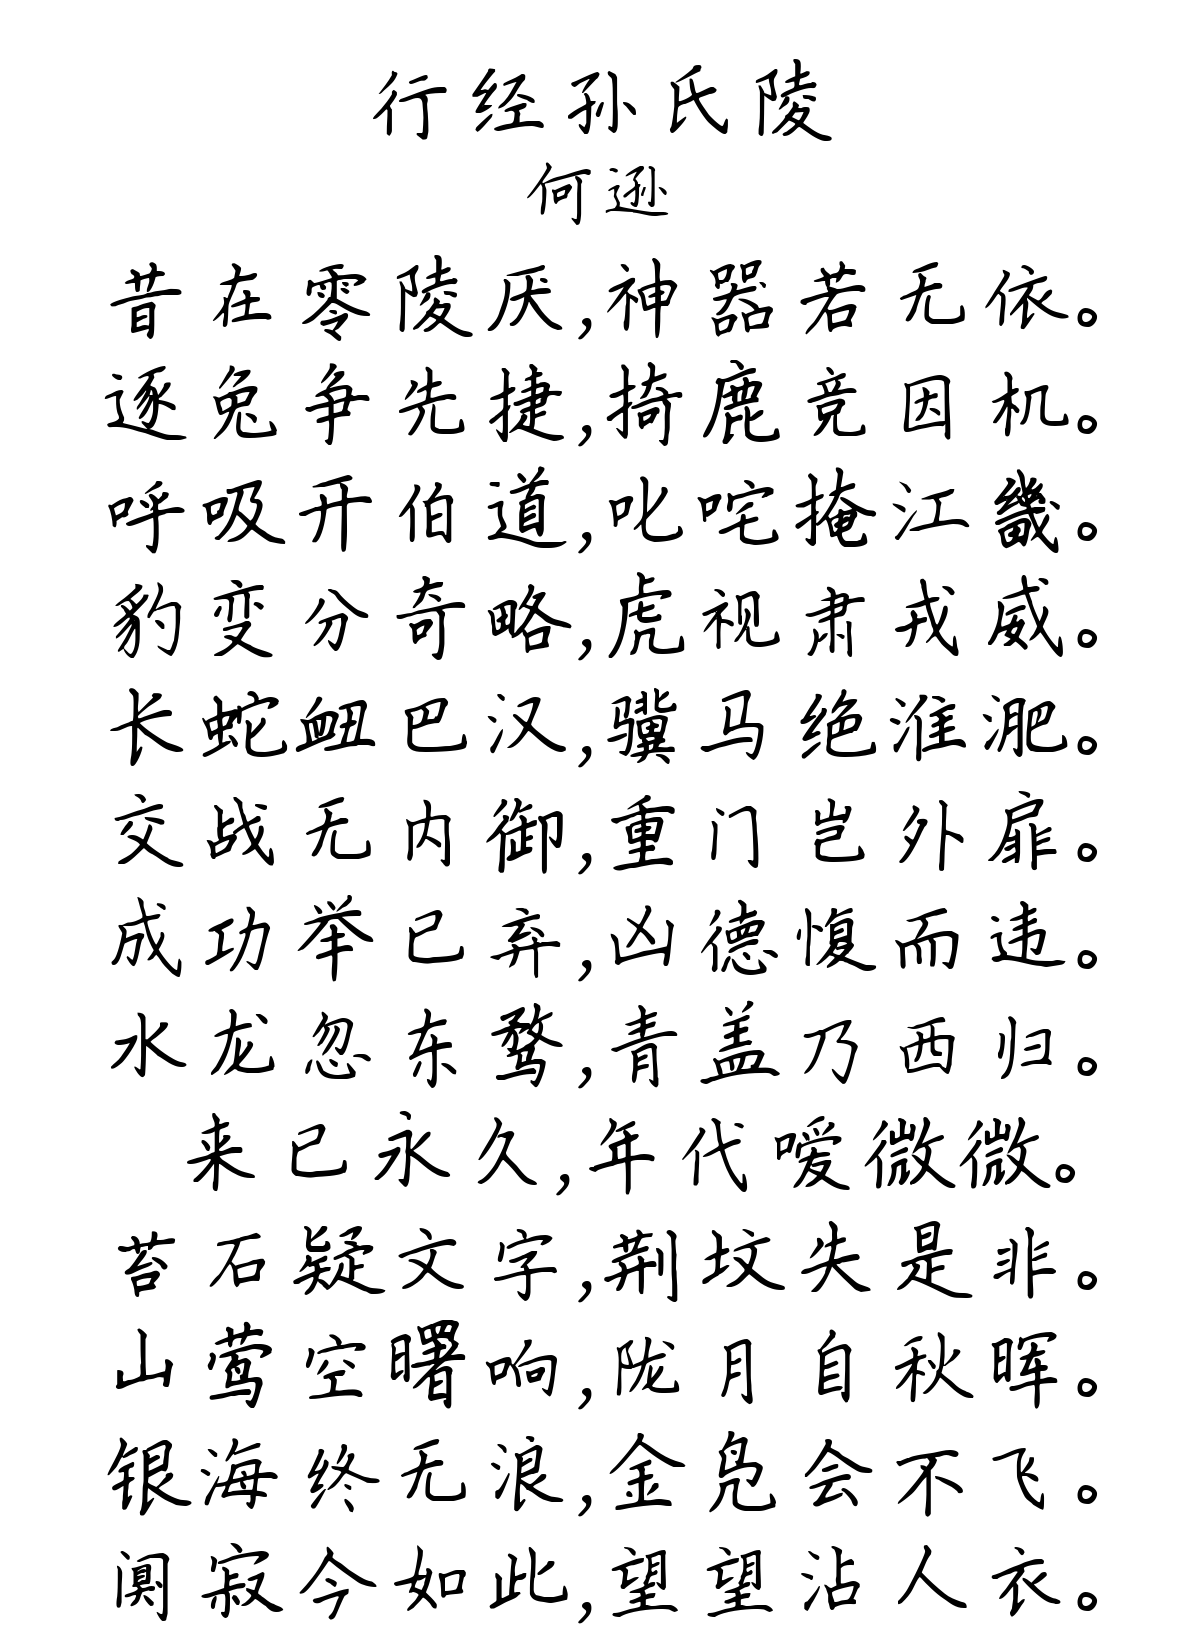 行经孙氏陵
何逊
昔在零陵厌,神器若无依。
逐兔争先捷,掎鹿竞因机。
呼吸开伯道,叱咤掩江畿。
豹变分奇略,虎视肃戎威。
长蛇衄巴汉,骥马绝淮淝。
交战无内御,重门岂外扉。
成功举已弃,凶德愎而违。
水龙忽东鹜,青盖乃西归。
来已永久,年代嗳微微。
苔石疑文字,荆坟失是非。
山莺空曙响,陇月自秋晖。
银海终无浪,金凫会不飞。
阒寂今如此,望望沾人衣。